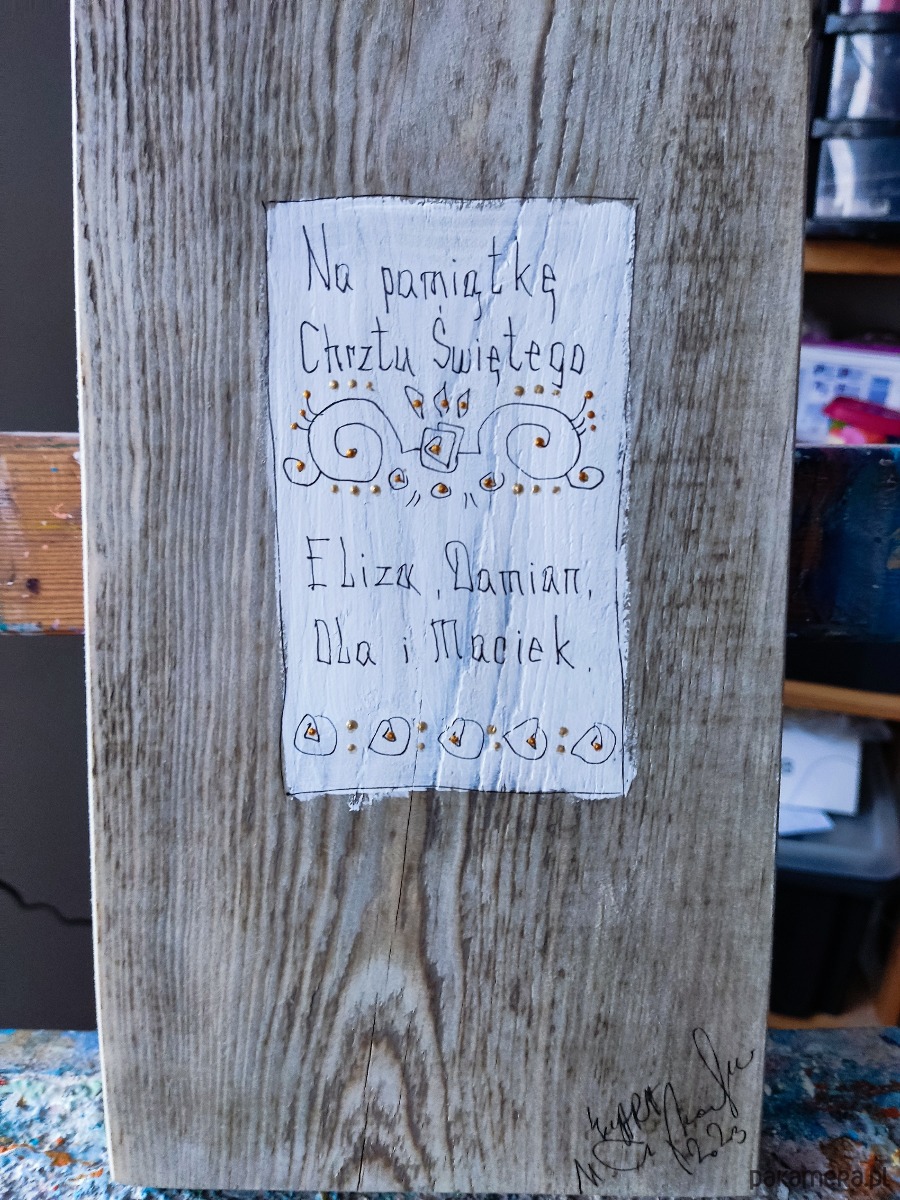 Na pamiątkę
Chrztu Świętego
Eliza, Damian,
Ola i Maciek.
2023
pakamera.pl